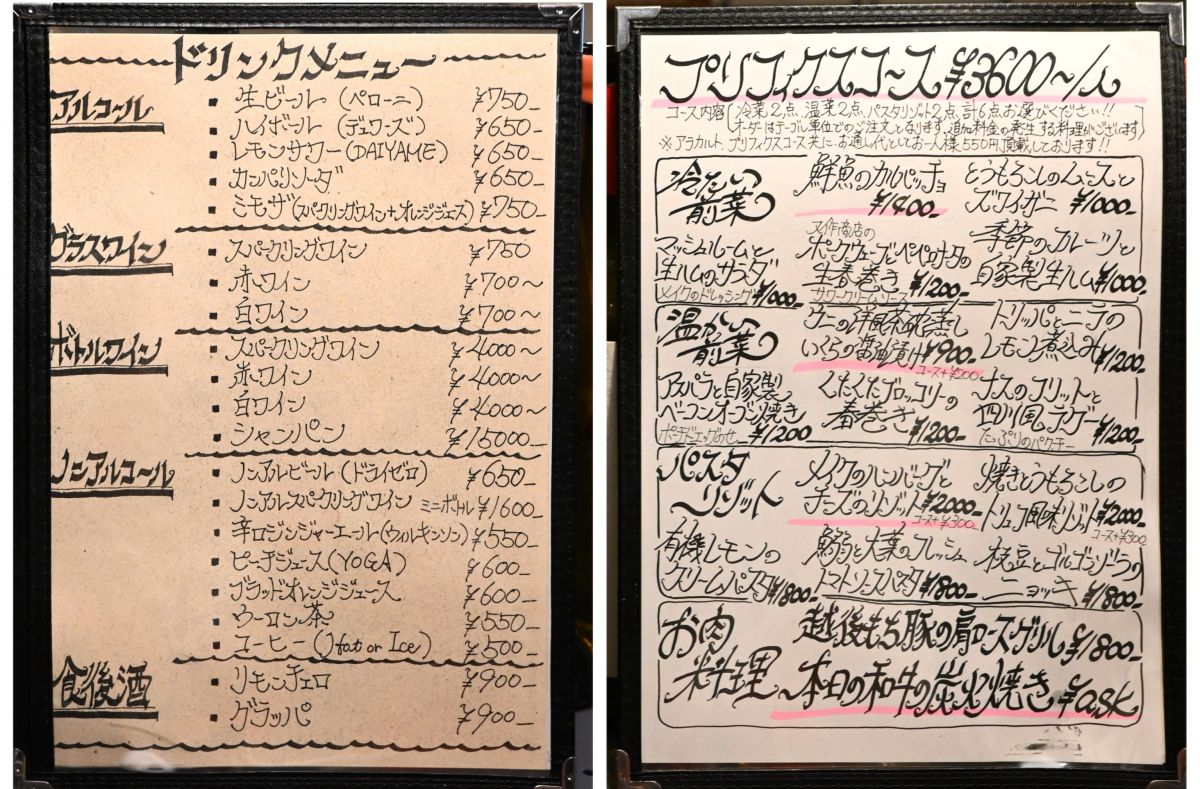 ドリンクメニュー
アルコール
・生ビール (ペローニ) ¥750-
・ハイボール (デュワーズ) ¥650-
・レモンサワー (DAIYAME) ¥650-
・カンパリソーダ ¥650-
・ミモザ (スパークリングワイン+オレンジジュース) ¥750-
グラスワイン
・スパークリングワイン ¥750
・赤ワイン ¥700〜
・白ワイン ¥700〜
ボトルワイン
・スパークリングワイン ¥4000〜
・赤ワイン ¥4000〜
・白ワイン ¥4000〜
・シャンパン ¥15000-
ノンアルコール
・ノンアルビール (ドライゼロ) ¥650-
・ノンアルスパークリングワイン ミニボトル ¥1600-
・辛口ジンジャーエール (ウィルキンソン) ¥550-
・ピーチジュース (YOGA) ¥600-
・ブラッドオレンジジュース ¥600-
・ウーロン茶 ¥550-
・コーヒー (Hot or Ice) ¥500-
食後酒
・リモンチェロ ¥900-
・グラッパ ¥900-
プリフィクスコース ¥3600〜/人
コース内容 冷菜2点、温菜2点、パスタリゾット2点、計6点お選びください!!
オーダーはテーブル単位でのご注文となります。追加料金の発生する料理がございます
※アラカルト、プリフィクスコース共に、お通し代としてお一人様550円頂戴しております!!
冷たい
前菜
鮮魚のカルパッチョ
¥1400-
とうもろこしのムースと
ズワイガニ ¥1000-
マッシュルームと
生ハムのサラダ
メイクのドレッシング ¥1000-
〆作商店の
ポークウデとペペロナータの
生春巻き ¥1200-
サワークリームソース
季節のフルーツと
自家製生ハム ¥1000-
温かい
前菜
ウニの洋風茶わん蒸し
いくらの醤油漬け ¥900-
コース+¥200
トリッパとニラの
レモン煮込み ¥1200
アスパラと自家製
ベーコンオーブン焼き
ポーチドエッグのせ ¥1200
くたくたブロッコリーの
春巻き ¥1200-
ナスのフリットと
四川風ラグー ¥1200-
たっぷりのパクチー
パスタ
リゾット
メイクのハンバーグと
チーズのリゾット ¥2000-
コース+¥300
焼きとうもろこしの
トリュフ風味リゾット ¥2000-
コース+¥300
有機レモンの
クリームパスタ ¥1800-
鰯と大葉のフレッシュ
トマトソースパスタ ¥1800-
枝豆とゴルゴンゾーラの
ニョッキ ¥1800-
お肉
料理
越後もち豚の肩ロースグリル ¥1800-
本日の和牛の炭火焼き ¥ask